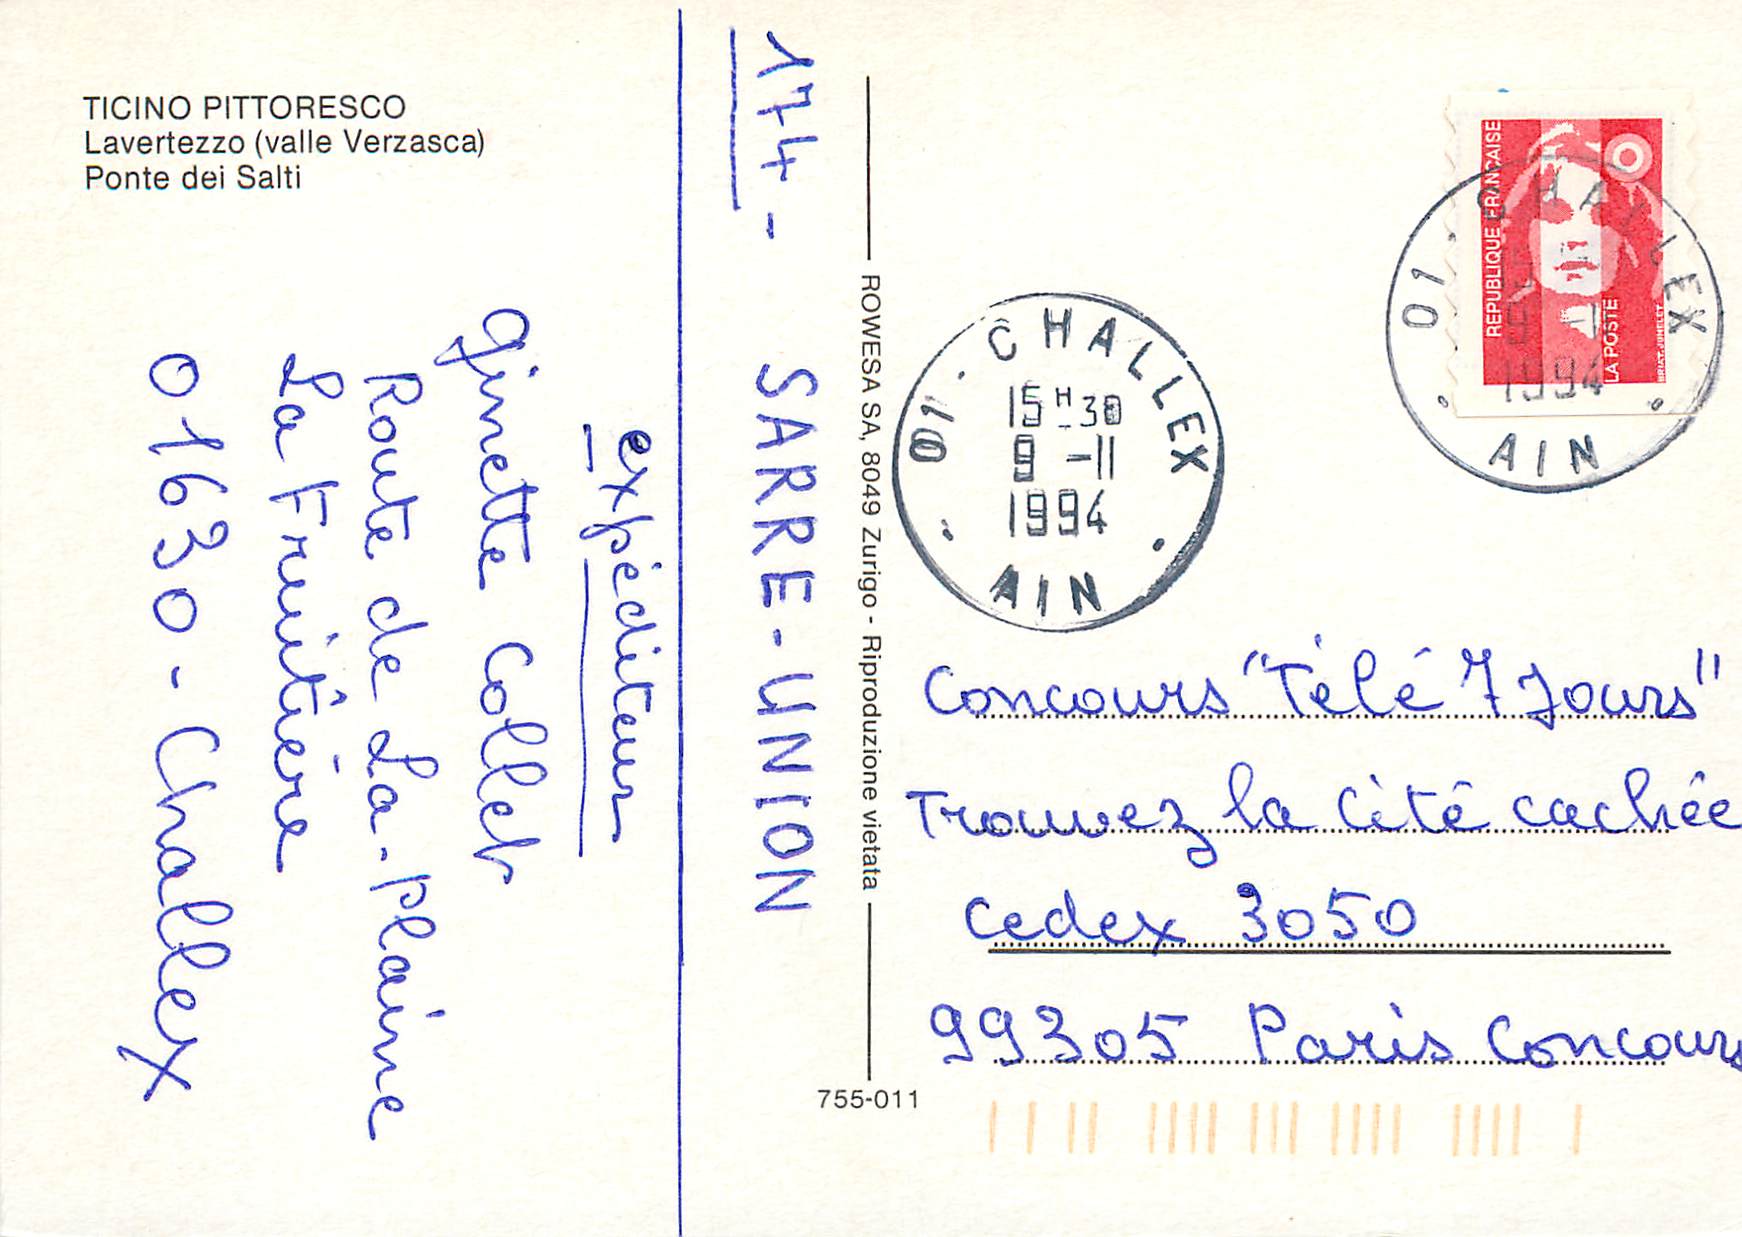 TICINO PITTORESCO
Lavertezzo (valle Verzasca)
Ponte dei Salti
174 - SARRE-UNION
expéditeur
Ginette Collet
Route de La-Plaine
La Fruitière
01630 - Challex
ROWESA SA, 8049 Zurigo - Riproduzione vietata
755-011
01 · CHALLEX
15H30
9 -11
1994
AIN
REPUBLIQUE FRANÇAISE
LA POSTE
BRIAT. JUMELET
01 · CHALLEX
1994
AIN
Concours "Télé 7 Jours"
Trouvez la Cité cachée
Cedex 3050
99305 Paris Concours